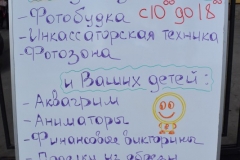 - Фотобудка с 10 до 18
- Инкассаторская техника
- Фотозона
и Ваших детей:
- Аквагрим
- Аниматоры
- Финансовые викторины